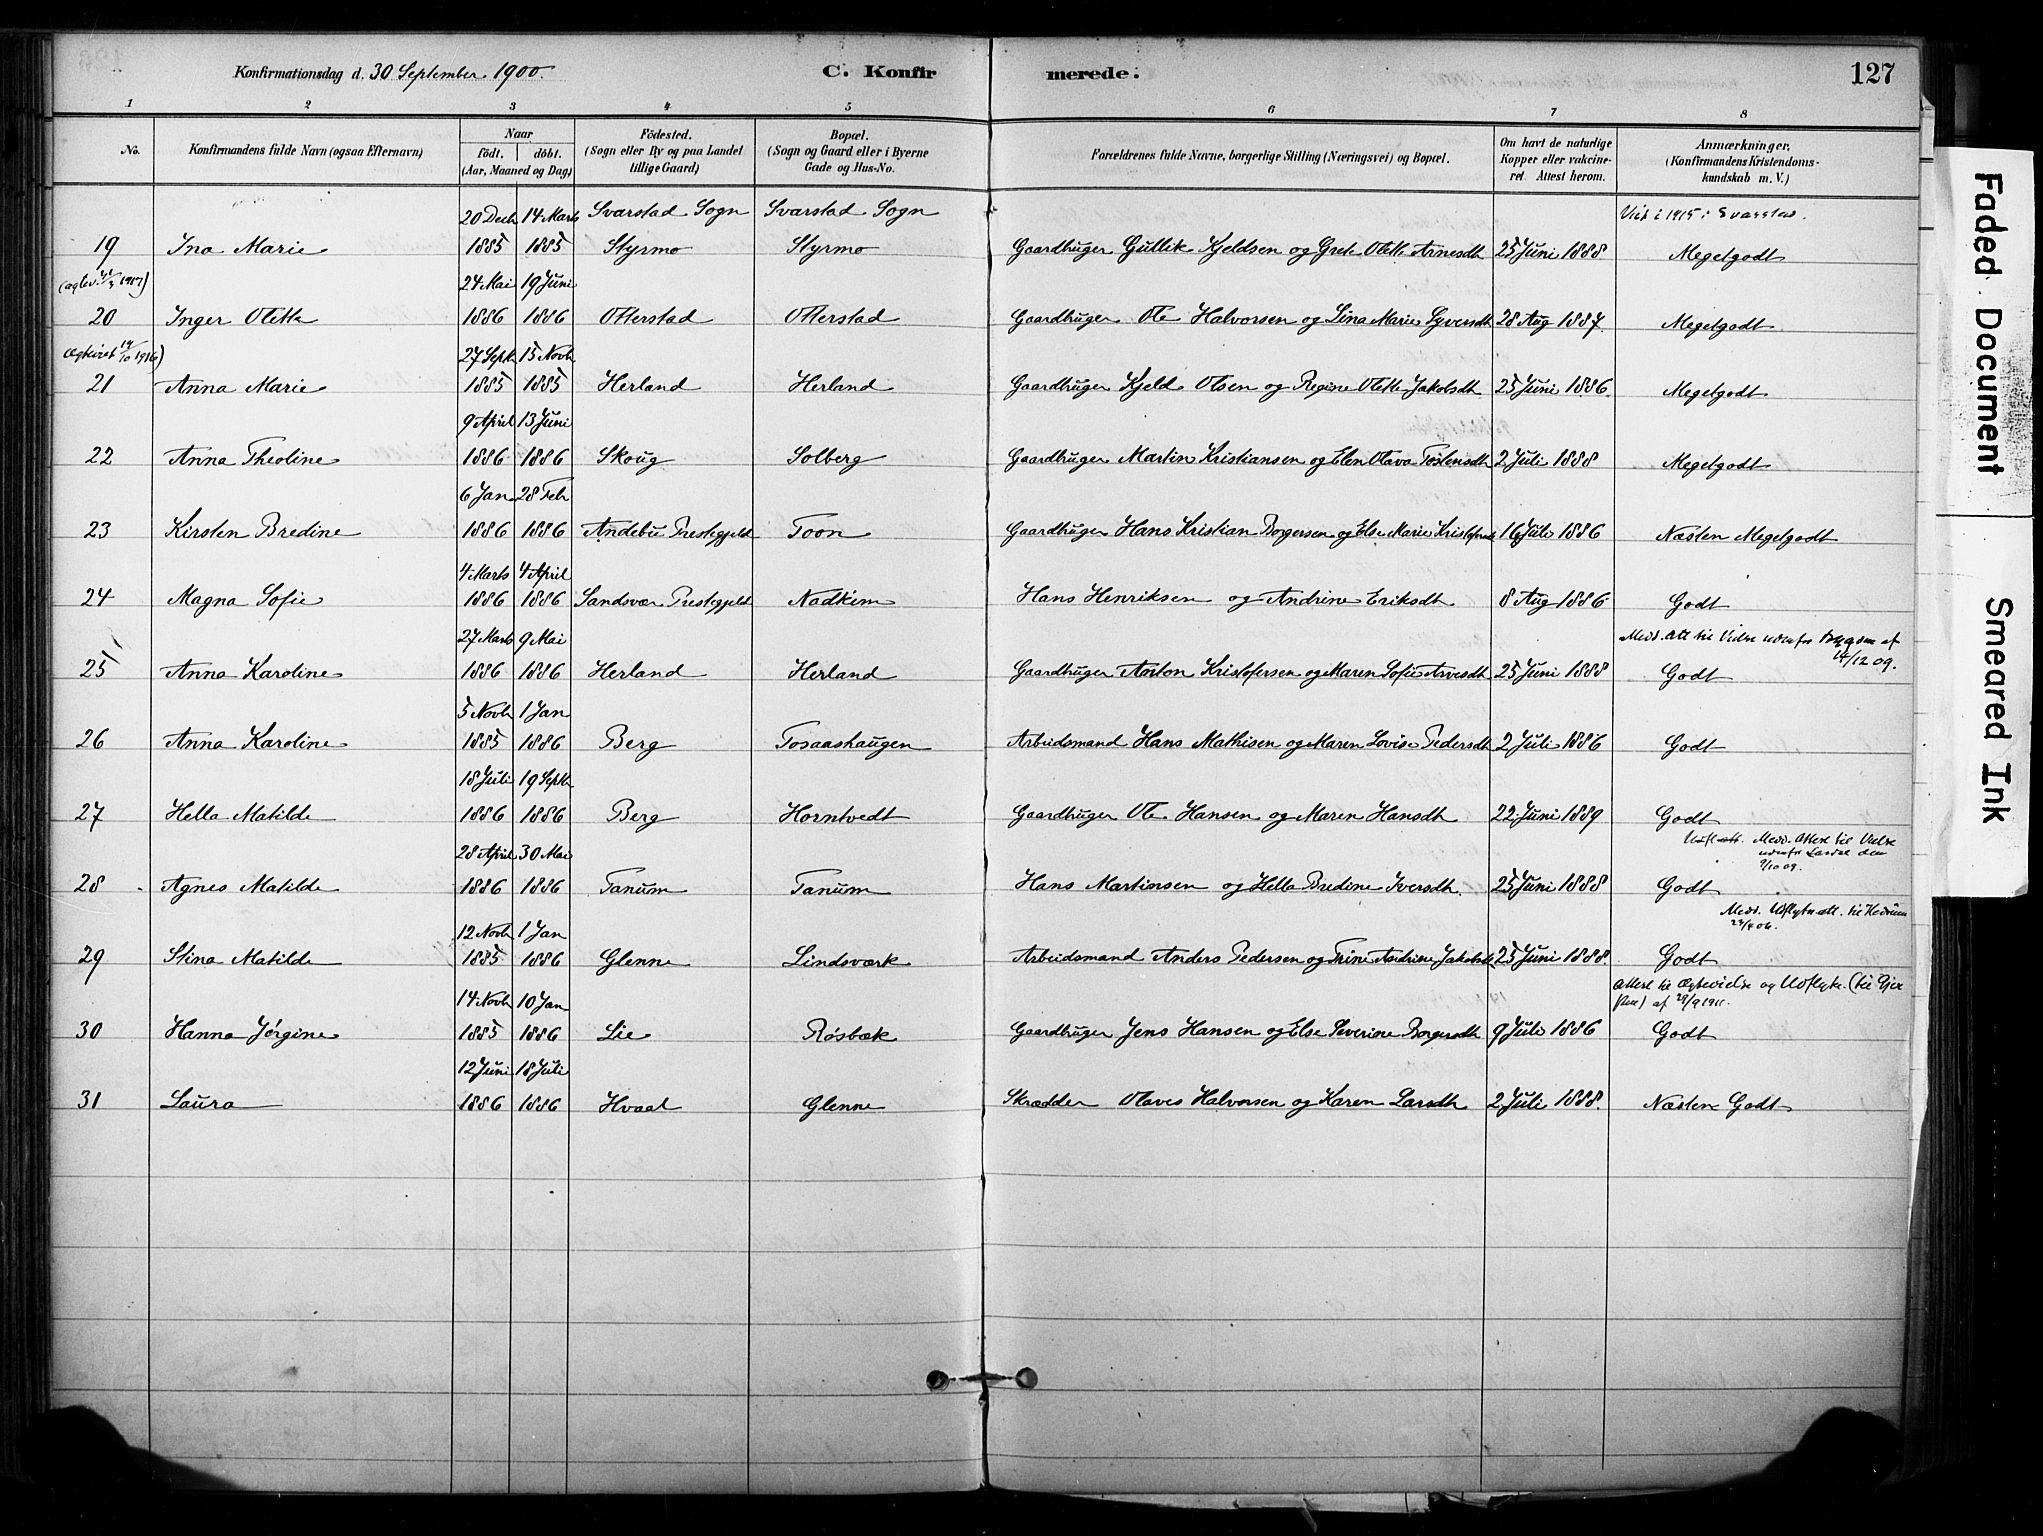 Konfirmationsdag d. 30 September 1900.
C. Konfirmerede.
127
1 2 3 4 5 6 7 8
No.
Konfirmandens fulde Navn (ogsaa Efternavn)
Naar
födt. döbt.
(Aar, Maaned og Dag)
Födested.
(Sogn eller By og paa Landet
tillige Gaard)
Bopæl.
(Sogn og Gaard eller i Byerne
Gade og Hus-No.
Forældrenes fulde Navne, borgerlige Stilling (Næringsvei) og Bopæl.
Om havt de naturlige
Kopper eller vakcine-
ret. Attest herom.
Anmærkninger,
(Konfirmandens Kristendoms-
kundskab m. V.)
20 Decb 14 Marts Svarstad Sogn Svarstad Sogn Viet i 1915 i Svarstad.
19 Ina Marie 1885 1885 Styrmo Styrmo Gaardbruger Gullik Kjeldsen og Grete Olette Arnesdt 25 Juni 1888 Megetgodt
24 Mai 19 Juni
20 Inger Olette 1886 1886 Otterstad Otterstad Gaardbruger Ole Halvorsen og Lina Marie Syversdt 28 Aug 1887. Megetgodt
27 Septb 15 Novb
21 Anna Marie 1885 1885 Herland Herland Gaardbruger Kjeld Olsen og Regine Olette Jakobsdt 25 Juni 1886. Megetgodt
9 April 13 Juni
22 Anna Theoline 1886 1886 Skoug Solberg Gaardbruger Martin Kristiansen og Elen Olava Tostensdt 2 Juli 1888 Megetgodt
6 Jan 28 Feb
23 Kirsten Bredine 1886 1886 Andebu Prestegjeld Toon Gaardbruger Hans Kristian Borgersen og Else Marie 16 Juli 1886 Næsten Megetgodt
4 Marts 4 April
24 Magna Sofie 1886 1886 Sandsvær Prestegjeld Nadkim Hans Henriksen og Andrine Eriksdt 8 Aug 1886 Godt
27 Marts 9 Mai Medd. Att til Vielse udenfor Bygden af
/12 09.
25 Anna Karoline 1886 1886 Herland Herland Gaardbruger Kristofersen og Maren Sofie 25 Juni 1888 Godt
5 Novb 1 Jan
26 Anna Karoline 1885 1886 Berg Tosaashaugen Arbeidsmand Hans Mathisen og Maren Lovise Pedersdt 2 Juli 1886 Godt
18 Juli 19 Septb
27 Hella Matilde 1886 1886 Berg Horntvedt Gaardbruger Ole Hansen og Maren Hansdt 22 Juni 1889 Godt
28 April 30 Mai Medd. Attest til Vielse
udenfor Landet den
9/10 09.
28 Agnes Matilde 1886 1886 Tanum Tanum Hans Martinsen og Hella Bredine Iversdt. 25 Juni 1888 Godt
Medd. Udflytn.att. til Hedrum
12 Novb 1 Jan
29 Stina Matilde 1885 1886 Glenne Lindsværk Arbeidsmand Anders Pedersen og Trine Andrine Jakobsdt 25 Juni 1888. Godt
14 Novb 10 Jan Attest til Ægtevielse og Udflytn. (til Gjer
pen) af 29/9 1911.
30 Hanna Jörgine 1885 1886 Lie Røsbæk Gaardbruger Jens Hansen og Else Severine Borgersdt 9 Juli 1886 Godt
12 Juni 18 Juli
31 Laura 1886 1886 Hvaal Glenne Skrædder Olaves Halvorsen og Karen Larsdt 2 Juli 1888. Næsten Godt
Faded Document
Smeared Ink